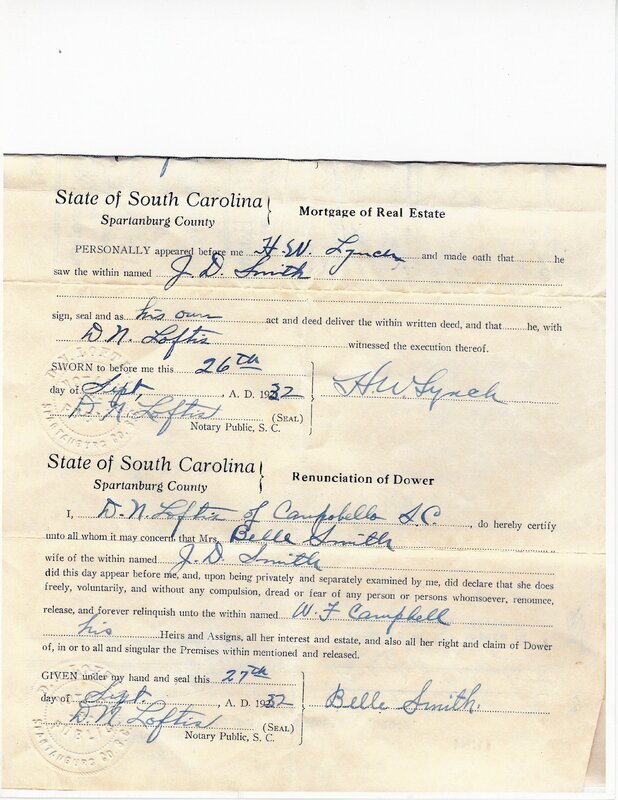 State of South Carolina
Spartanburg County
Mortgage of Real Estate
PERSONALLY appeared before me H.W. Lynch and made oath that he
saw the within named J. D Smith
sign, seal and as his own act and deed deliver the within written deed, and that he, with
D. N. Loftis witnessed the execution thereof.
SWORN to before me this 26th
day of Sept, A. D. 1932
H W Lynch
D. N. Loftis (SEAL)
Notary Public, S. C.
State of South Carolina
Spartanburg County
Renunciation of Dower
I, D. N. Loftis of Campobello S.C., do hereby certify
unto all whom it may concern that Mrs. Belle Smith
wife of the within named J. D Smith
did this day appear before me, and, upon being privately and separately examined by me, did declare that she does
freely, voluntarily, and without any compulsion, dread or fear of any person or persons whomsoever, renounce,
release, and forever relinquish unto the within named W. F Campbell
his Heirs and Assigns, all her interest and estate, and also all her right and claim of Dower
of, in or to all and singular the Premises within mentioned and released.
GIVEN under my hand and seal this 27th
day of Sept. A. D. 1932
Belle Smith.
D. N. Loftis (SEAL)
Notary Public, S. C.